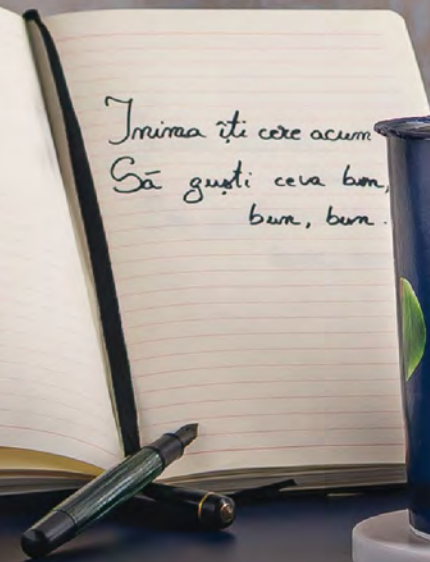 Inima îți cere acum
Să guști ceva bun,
bun, bun.